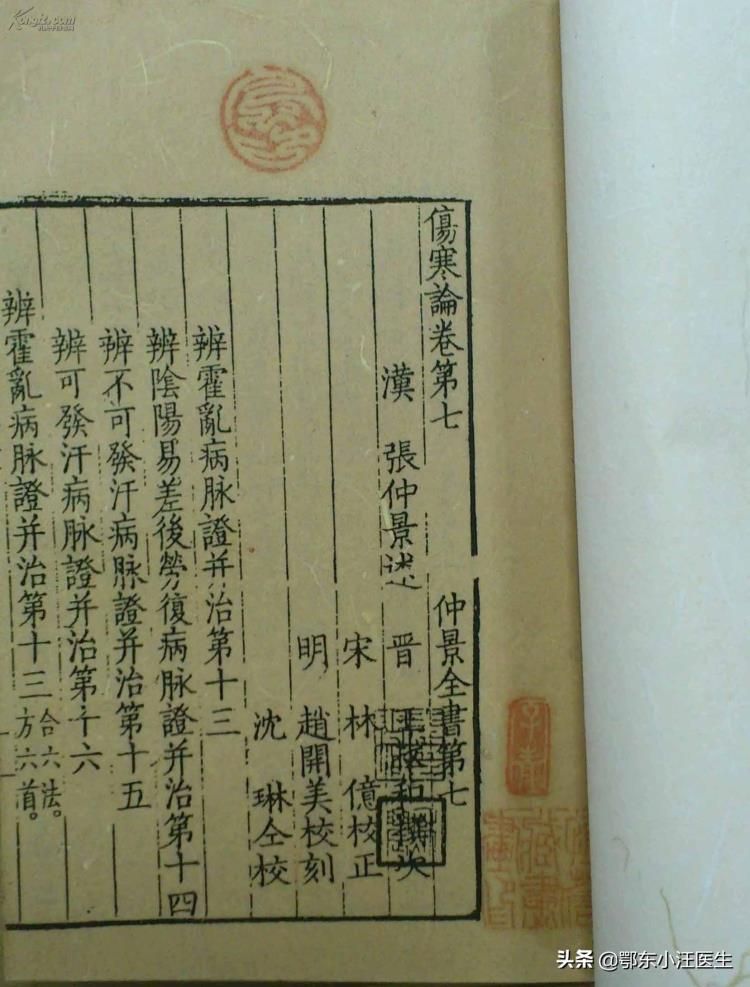 傷寒論卷第七 仲景全書第七
漢 張仲景述 晋 王叔和撰次
宋 林 億校正
明 趙開美校刻
沈 琳仝校
辨霍亂病脉證并治第十三
辨陰陽易差後勞復病脉證并治第十四
辨不可發汗病脉證并治第十五
辨可發汗病脉證并治第十六
辨霍亂病脉證并治第十三 合六法。方六首。
头条 @鄂东小汪医生